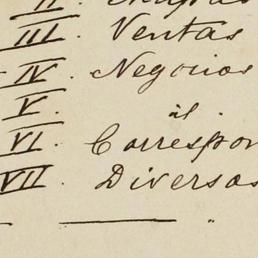 II.
III. Ventas
IV. Negocios
V. id.
VI. Correspon
VII. Diversas
"